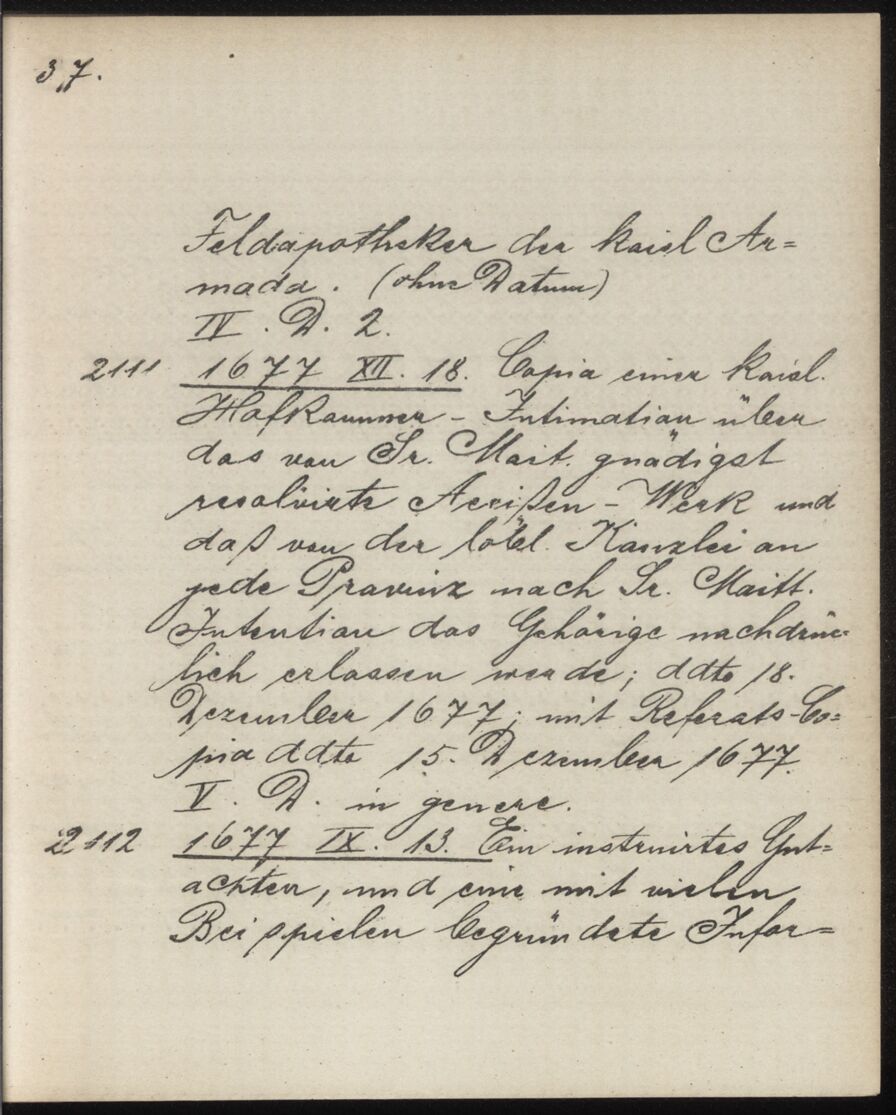 37.
Feldapotheker der kaisl Ar=
mada. (ohne Datum)
IV. D. 2.
2111 1677 XII. 18. Copia einer Kaisl.
Hofkammer - Intimation über
das von Sr. Mait. gnädigst
resolvirte Accißen - Werk und
daß von der löbl. Kanzlei an
jede Provinz nach Sr. Maitt.
Intention das Gehörige nachdrük=
lich erlassen werde; ddto 18.
Dezember 1677; mit Referats-Co=
pia ddto 15. Dezember 1677.
V. D. in genere.
2112 1677 IX. 13. Ein instruirtes Gut=
achten, und eine mit vielen
Beispielen begründete Infor=